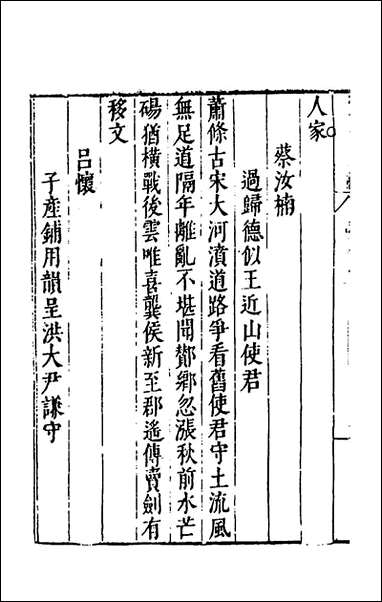 人家○
蔡汝楠
過歸德似王近山使君
蕭條古宋大河濆道路爭看舊使君守土流風
無足道隔年離亂不堪聞鄼鄉忽漲秋前水芒
碭猶橫戰後雲唯喜龔侯新至郡遙傳賣劍有
移文
呂懷
子產鋪用韻呈洪大尹謙守